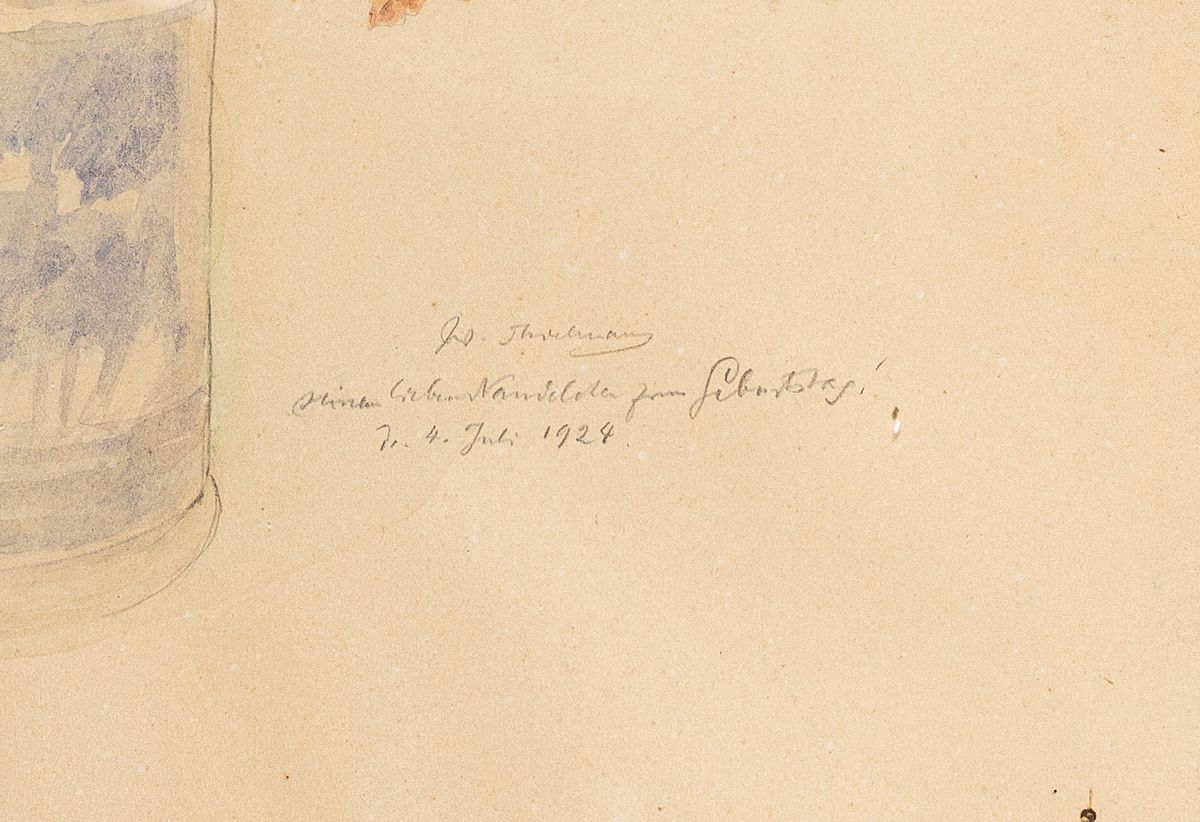 W. Thielmann
seinem lieben zum Geburtstag!
d. 4. Juli 1924.